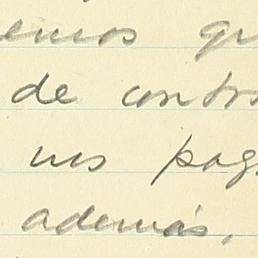 emos gr
de contr
nos pag
además,